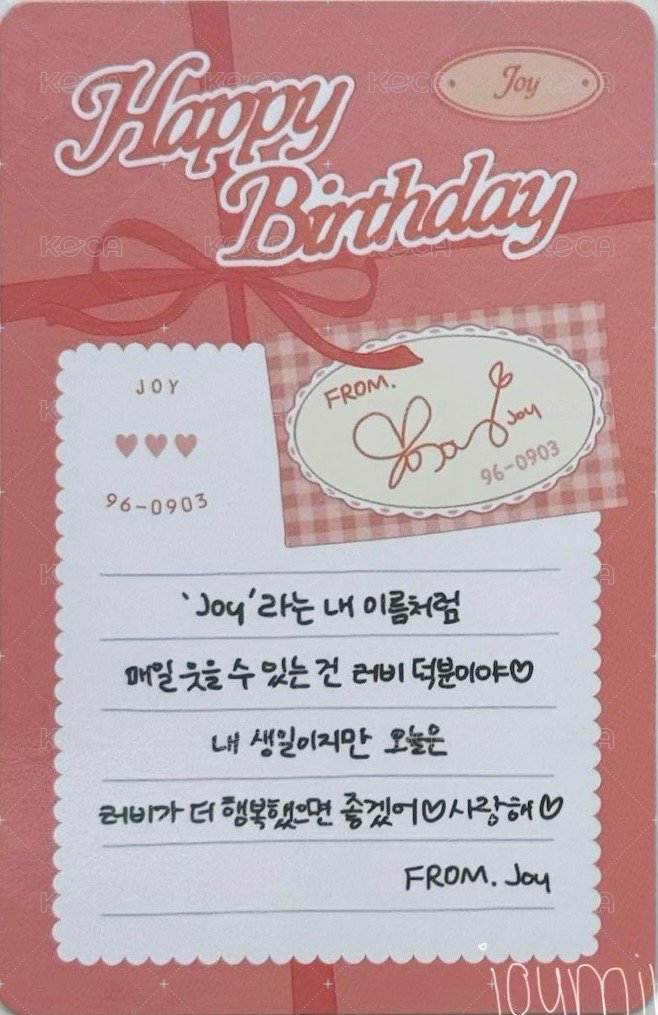 Happy
Birthday
Joy
JOY
96-0903
FROM.
Joy
96-0903
'Joy'라는 내 이름처럼
매일 웃을 수 있는 건 러비 덕분이야♡
내 생일이지만 오늘은
러비가 더 행복했으면 좋겠어♡사랑해♡
FROM. Joy
KOCA